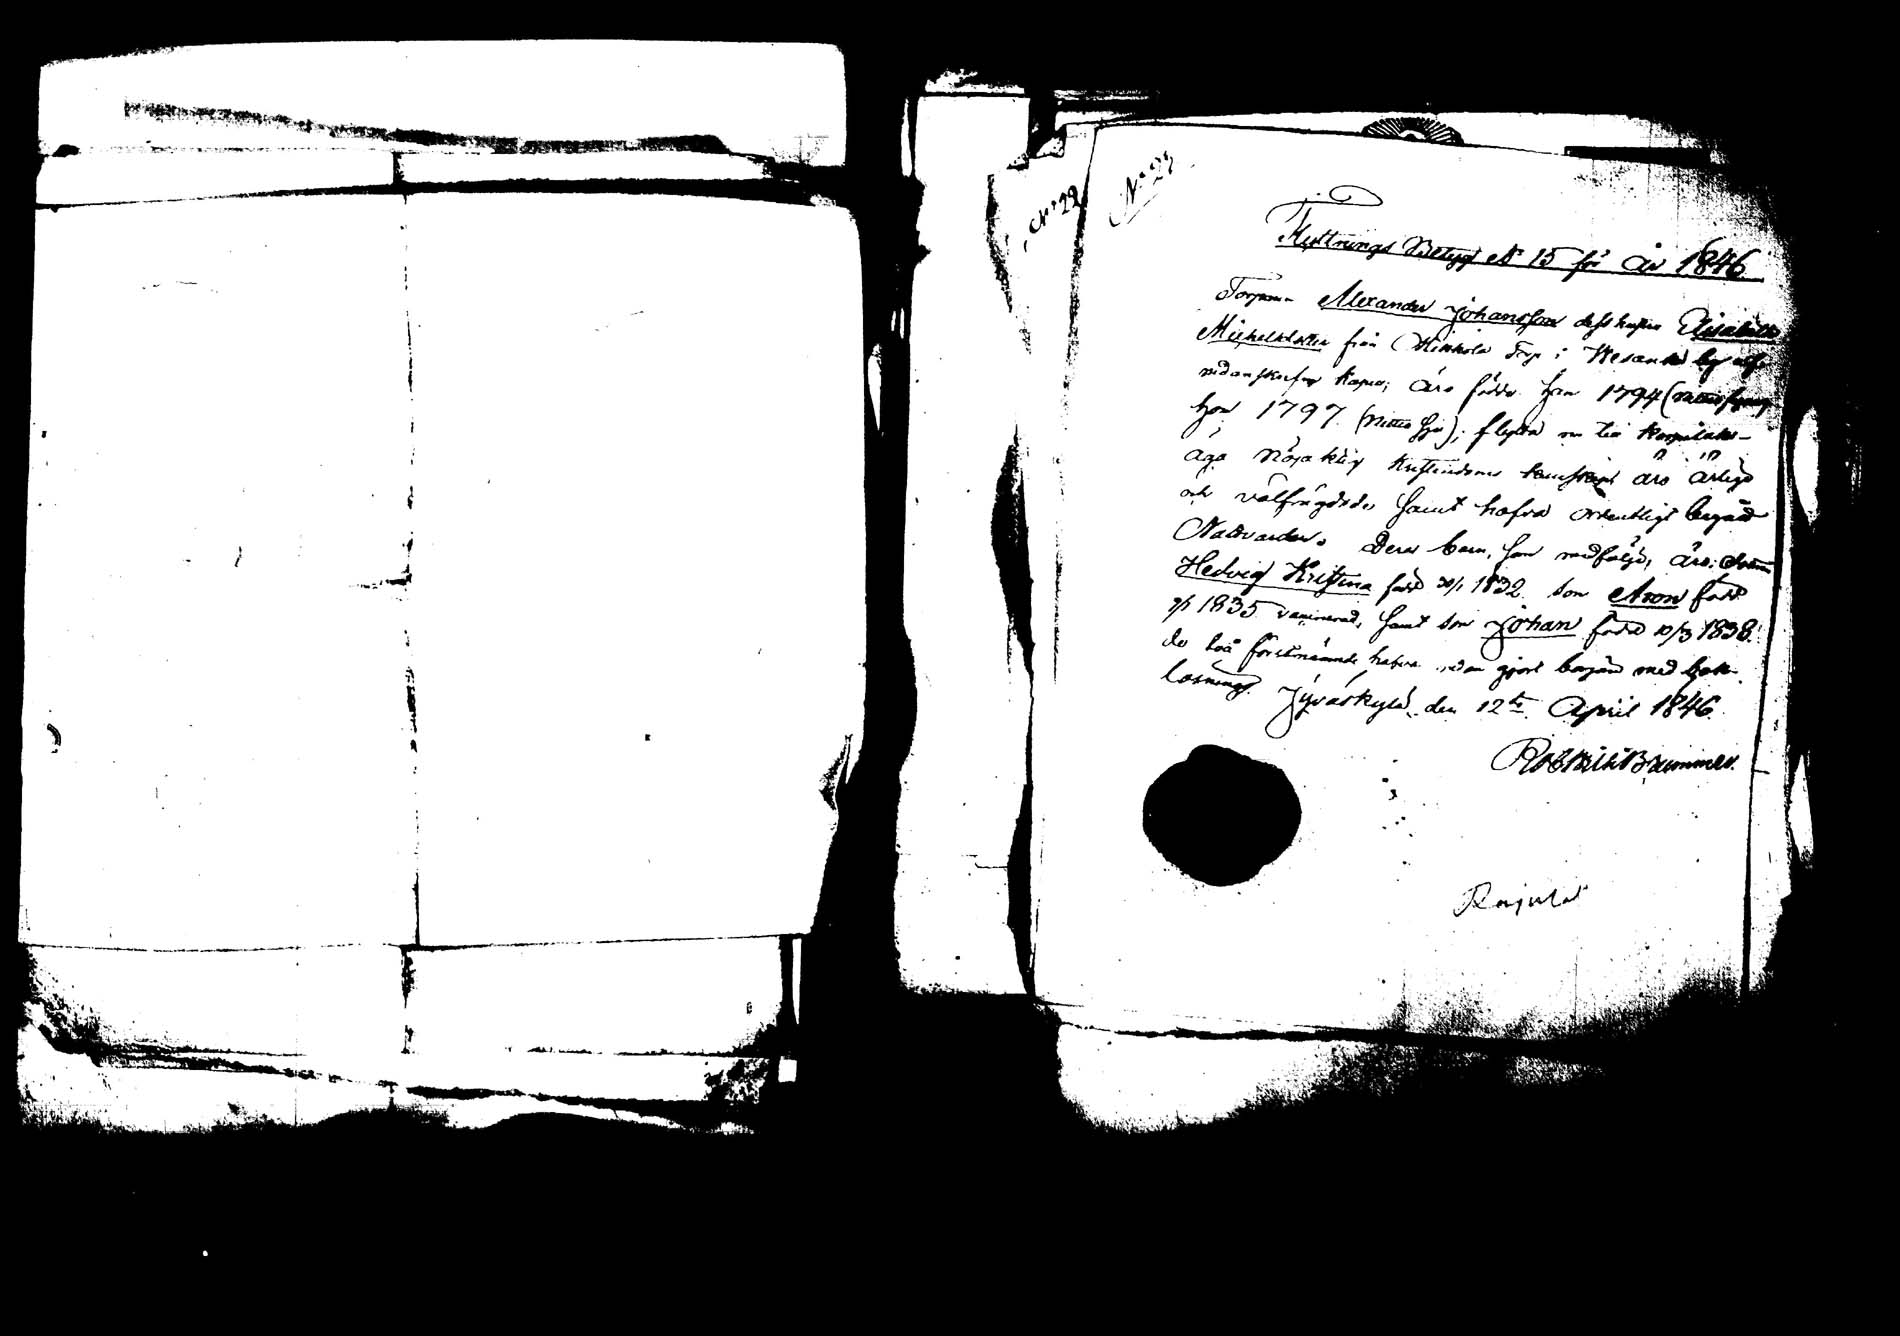 N:o 22
N:o 23
Flyttnings Betyg N:o 15 för år 1846.
Torparen Alexander Johansson dess hustru Elisabeth
Michelsdotter från Mikkola Torp i Wesanka by och
nedanskrefne äro födde han 1794
hon 1797. flytta nu till Korpilaks-
äga Nöjaktig kristendoms kunskap äro ärlige
och välfrägdade samt hafva ordentligt begådt
Nattvarden. Deras barn, som medfölja, äro:
Hedvig Kristina född 30/1 1832. Son Aron född
1835 vaccinerad, samt son Johan född 10/3 1838.
de två förstnämnde hafva redan gjort början med bok-
läsning. Jyväskylä den 12te April 1846.
Brummer.